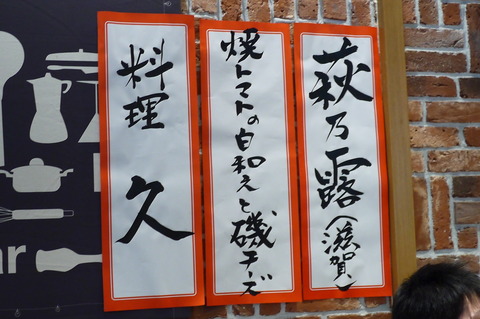 萩乃露(滋賀)
焼トマトの白和えと磯チーズ
料理 久